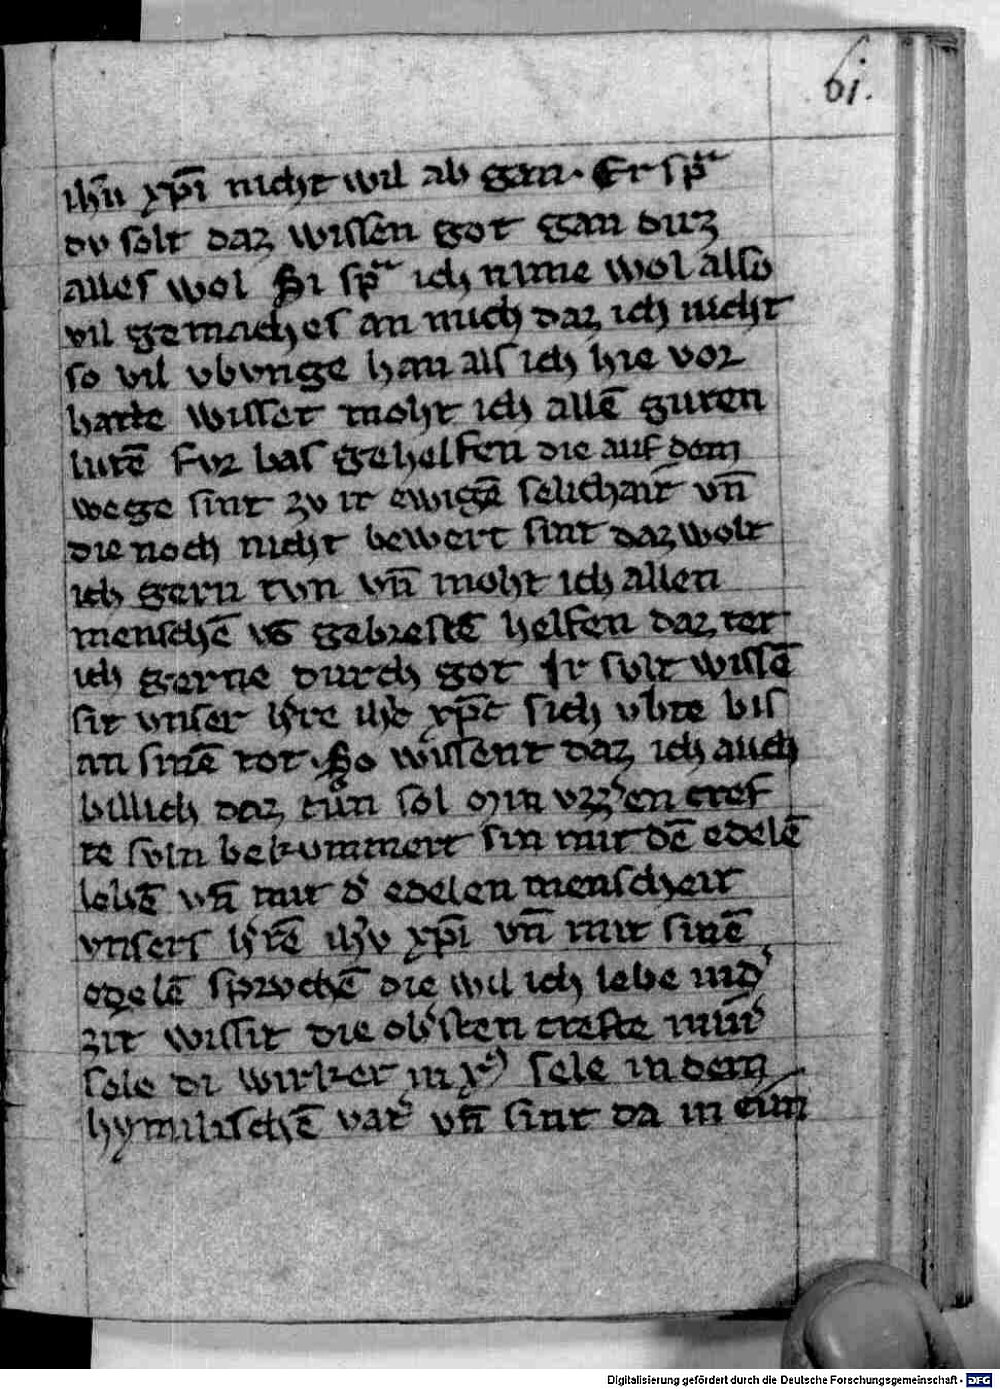 61.
ihũ xp̄i nicht wil ab gan · Er sp̃
dv solt daz wissen got gan duz
alles wol Si sp̃ ich nime wol also
vil gemaches an mich daz ich nicht
so vil vbvnge han als ich hie vor
hatte wisset moht ich allē guten
lutē fvr bas gehelfen die auf dem
wege sint zv ir ewigē selichait vn̄
die noch nicht bewert sint daz wolt
ich gern tvn vn̄ moht ich allen
menschē vs gebrestē helfen daz tet
ich gerne durch got Ir svlt wissē
sit vnser h̓re ihc xp̄c sich vbte bis
an sinē tot · So wissent daz ich auch
billich daz tůn sol Min vzz̓en cref
te svln bekvmmert sin mit dē edelē
lebē vn̄ mit d̓ edelen menscheit
vnsers h̓rē ihv xp̄i vn̄ mit sinē
edelē sprvchē die wil ich lebe in d̓
zit wissit die ob̓sten crefte min̄̓
sele di wirket in sele in dem
hymilischē vat̓ vn̄ sint da in eim
Digitalisierung gefördert durch die Deutsche Forschungsgemeinschaft - DFG